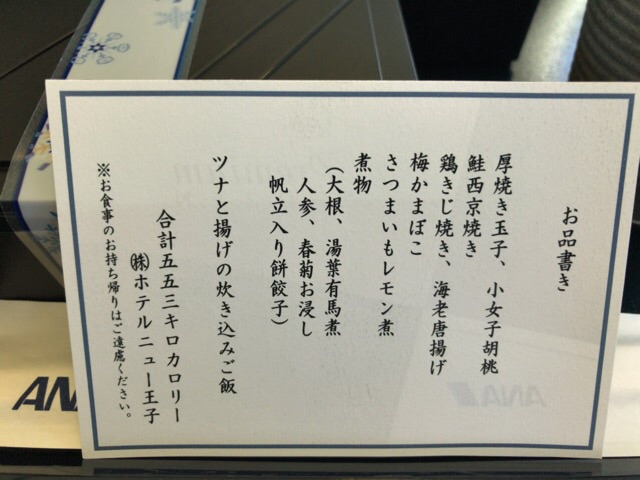 お品書き
厚焼き玉子、小女子胡桃
鮭西京焼き
鶏きじ焼き、海老唐揚げ
梅かまぼこ
さつまいもレモン煮
煮物
（大根、湯葉有馬煮
人参、春菊お浸し
帆立入り餅餃子）
ツナと揚げの炊き込みご飯
合計五五三キロカロリー
㈱ホテルニュー王子
※お食事のお持ち帰りはご遠慮ください。
ANA